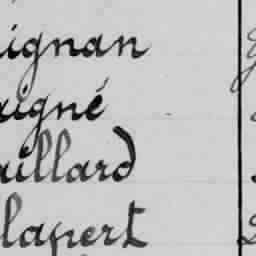 ignan
aigné
aillard
lapert